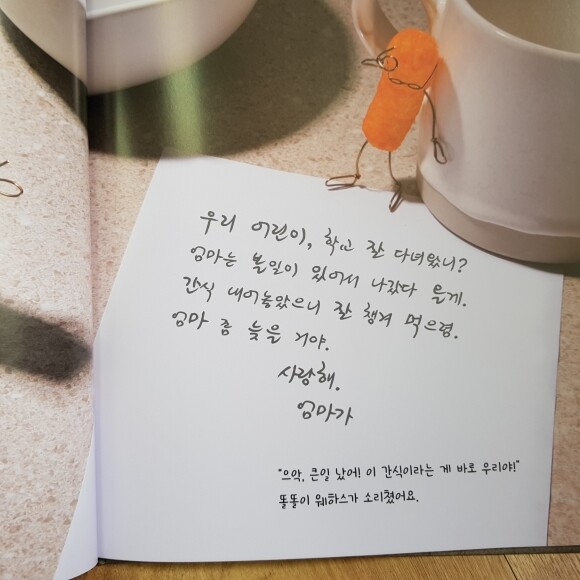 우리 어린이, 학교 잘 다녀왔니?
엄마는 볼일이 있어서 나갔다 올게.
간식 내어놓았으니 잘 챙겨 먹으렴.
엄마 좀 늦을 거야.
사랑해.
엄마가
"으악, 큰일 났어! 이 간식이라는 게 바로 우리야!"
똘똘이 웨하스가 소리쳤어요.